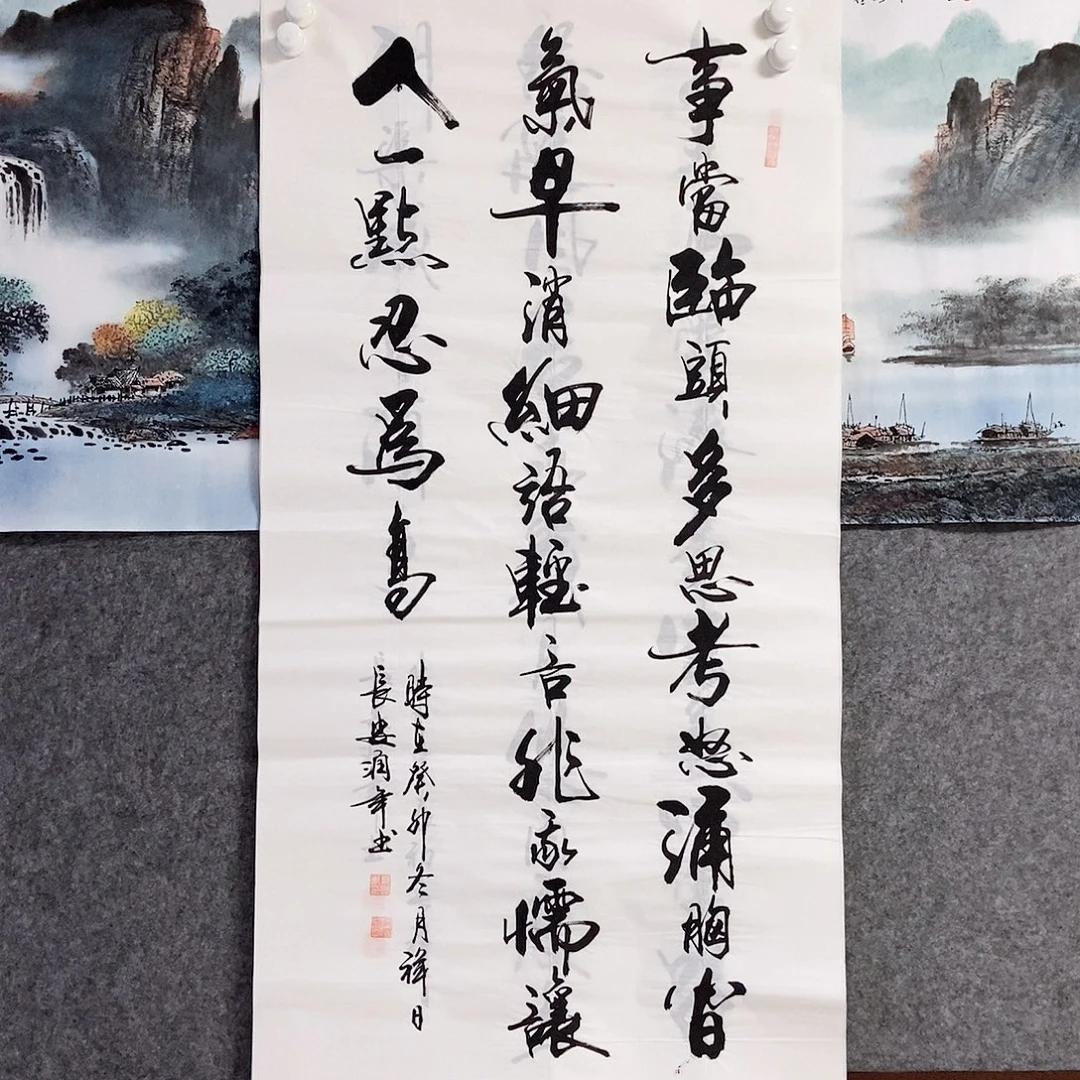 事當臨頭多思考怒涌胸旹
氣早消細語輕言非我懦讓
人一點忍爲高
時在癸卯冬月祥日
長安润年书